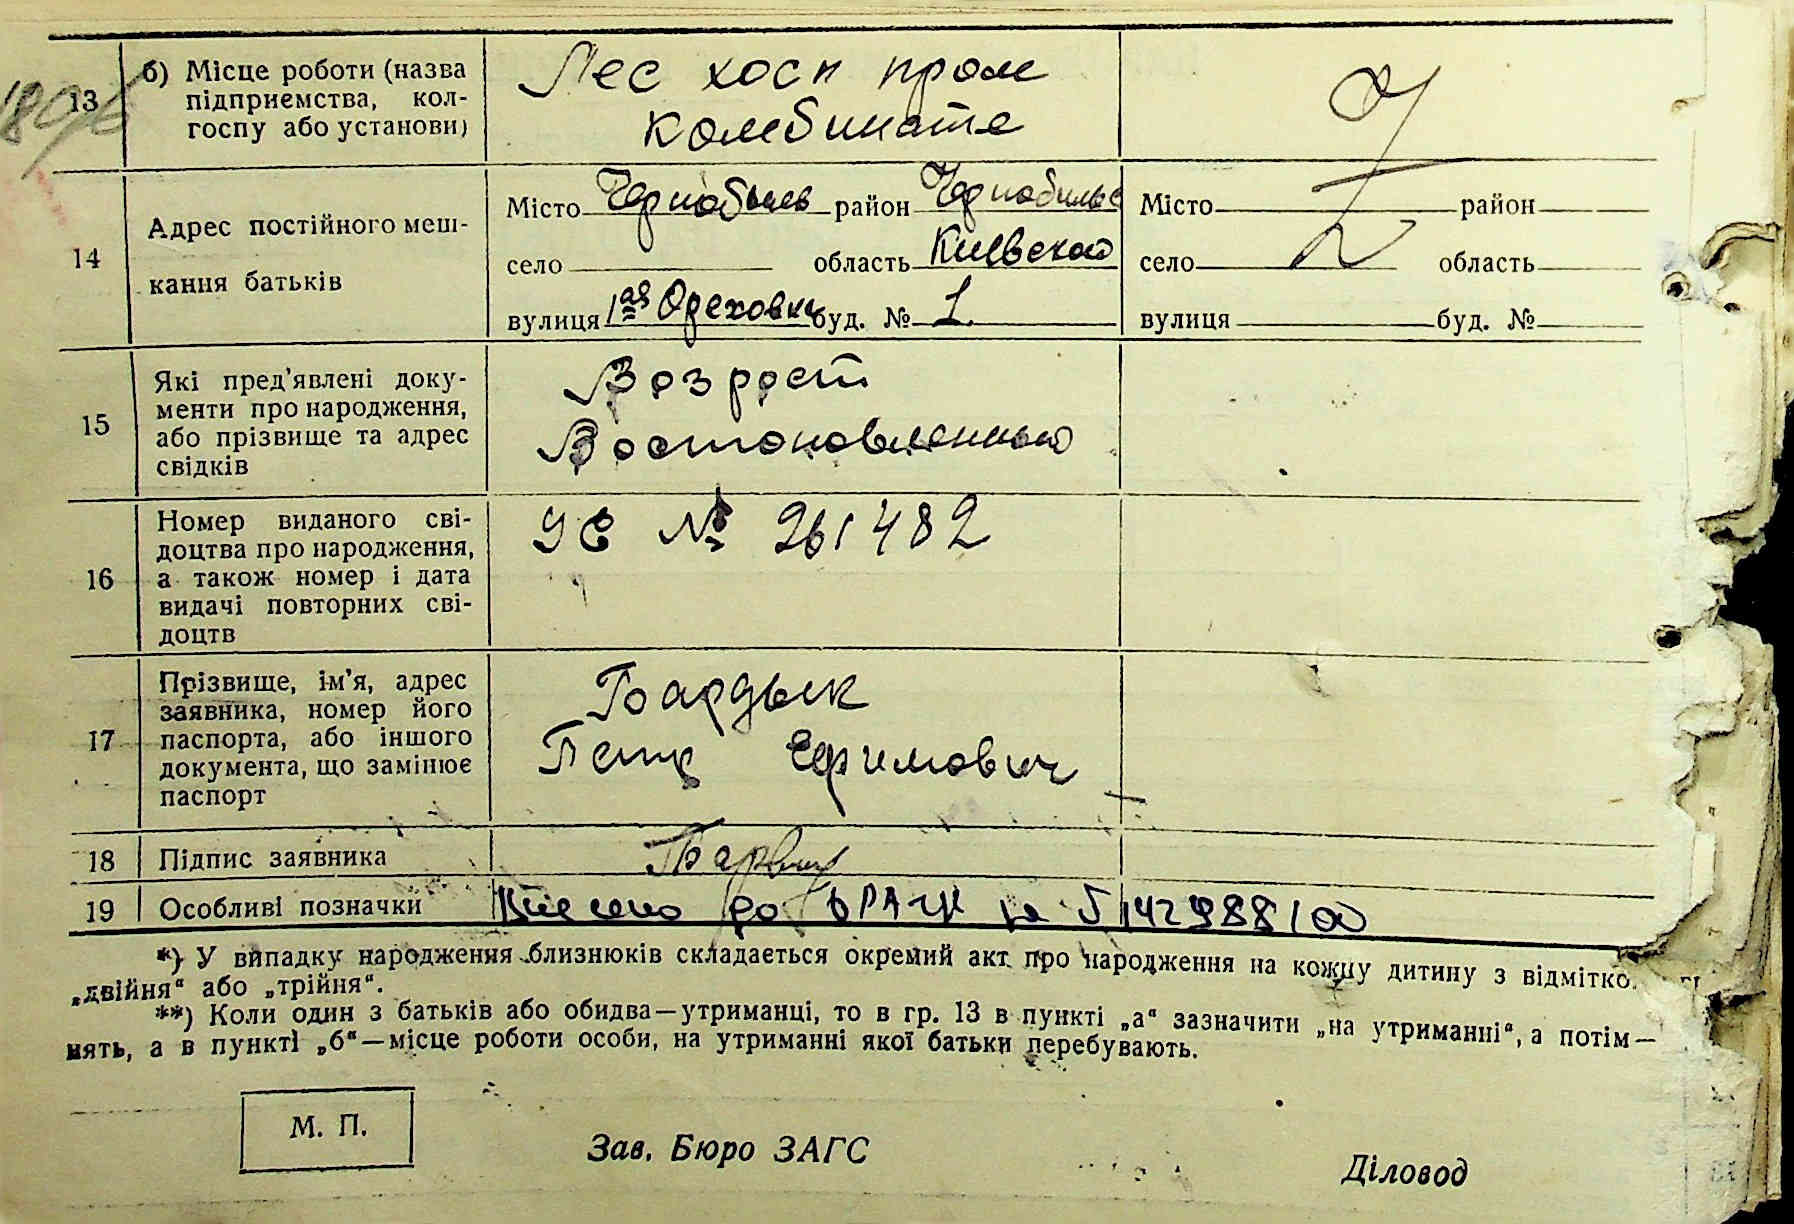 13
б) Місце роботи (назва
підприємства, кол-
госпу або установи)
Лес хосп пром
комбинате
14
Адрес постійного меш-
кання батьків
Місто Чернобыль район Чернобильс
село область Киевской
вулиця 1ая Ореховка буд. № 1
Місто район
село область
вулиця буд. №
15
Які пред'явлені доку-
менти про народження,
або прізвище та адрес
свідків
Возрост
Востоновленный
16
Номер виданого сві-
доцтва про народження,
а також номер і дата
видачі повторних сві-
доцтв
УС № 261482
17
Прізвище, ім'я, адрес
заявника, номер його
паспорта, або іншого
документа, що замінює
паспорт
Бардык
Петр Ефимович
18 Підпис заявника
19 Особливі позначки
Внесено до
*) У випадку народження близнюків складається окремий акт про народження на кожну дитину з відмітко
„двійня“ або „трійня“.
**) Коли один з батьків або обидва—утриманці, то в гр. 13 в пункті „а“ зазначити „на утриманні“, а потім—
нять, а в пункті „б“—місце роботи особи, на утриманні якої батьки перебувають.
М. П.
Зав. Бюро ЗАГС
Діловод